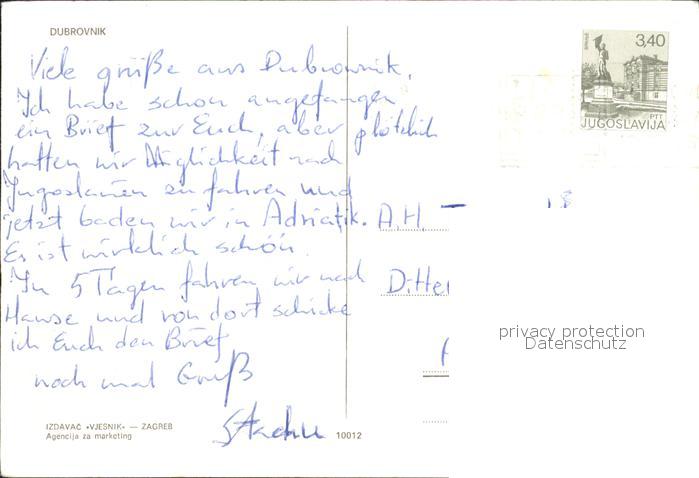 DUBROVNIK
Viele grüße aus Dubrownik.
Ich habe schon angefangen
ein Brief zur Euch, aber plötzlich
hatten wir Möglichkeit nach
Jugoslawien zu fahren und
jetzt baden wir in Adriatik.
Es ist wirklich schön.
In 5 Tagen fahren wir nach
Hause und von dort schicke
ich Euch den Brief
noch mal Gruß
Stachu
IZDAVAČ «VJESNIK» — ZAGREB
Agencija za marketing
10012
3,40
PTT
JUGOSLAVIJA
A.H.
18
privacy protection
Datenschutz